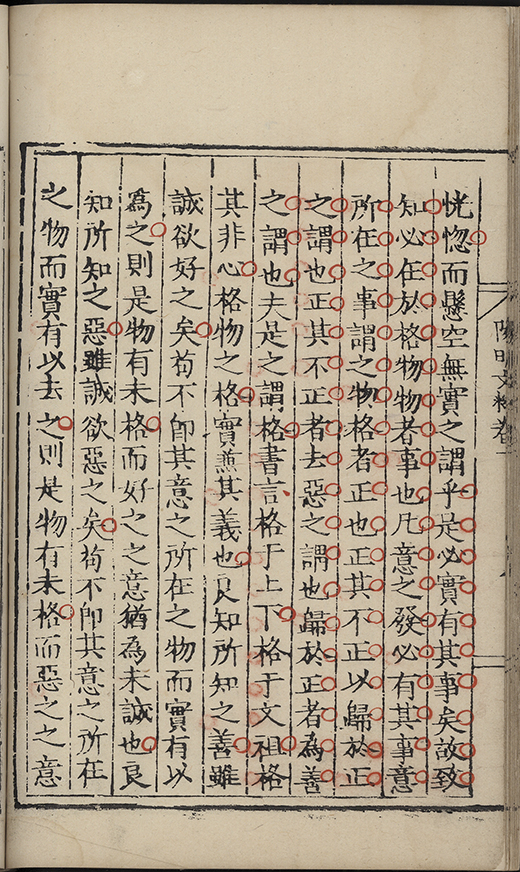 恍惚而懸空無實之謂乎是必實有其事矣故致
知必在於格物物者事也凡意之發必有其事意
所在之事謂之物格者正也正其不正以歸於正
之謂也正其不正者去惡之謂也歸於正者為善
之謂也夫是之謂格書言格于上下格于文祖格
其非心格物之格實兼其義也良知所知之善雖
誠欲好之矣苟不卽其意之所在之物而實有以
爲之則是物有未格而好之之意猶為未誠也良
知所知之惡雖誠欲惡之矣苟不卽其意之所在
之物而實有以去之則是物有未格而惡之之意
陽明文粹卷一